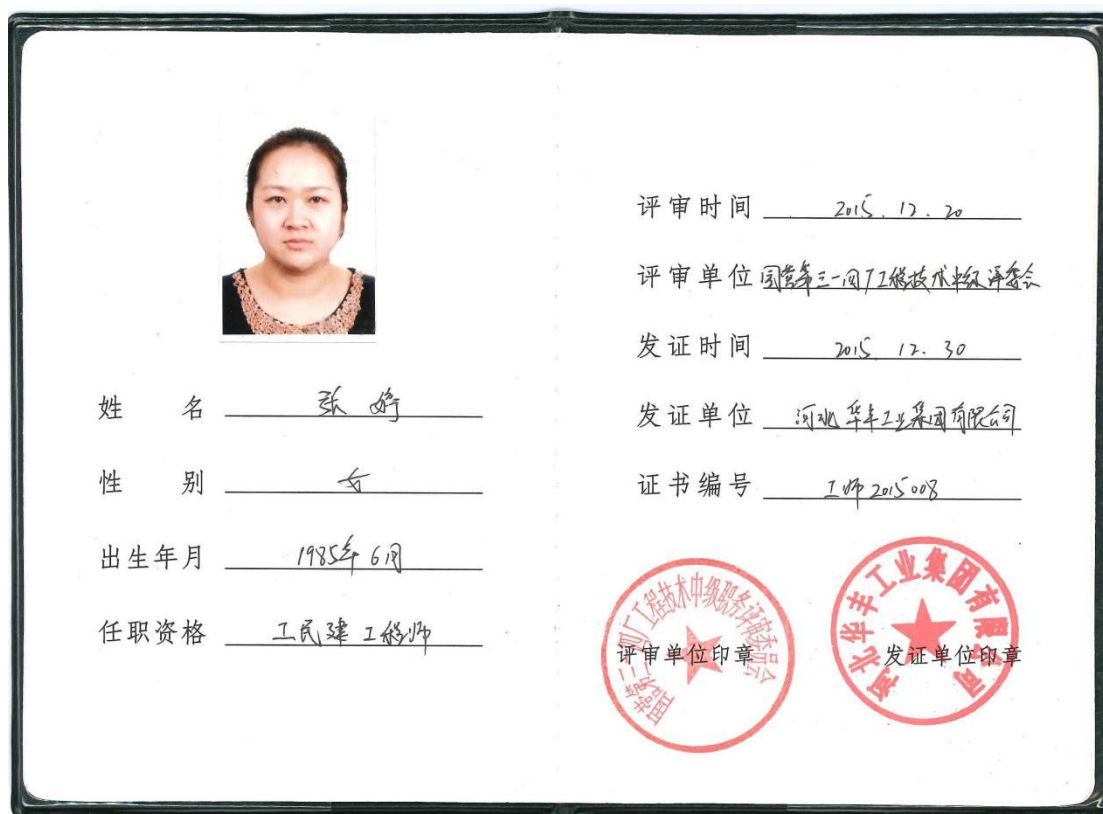 姓名 张婷
性别 女
出生年月 1985年6月
任职资格 工民建工程师
评审时间 2015.12.20
评审单位 国营第三一四厂工程技术中级评委会
发证时间 2015.12.30
发证单位 河北华丰工业集团有限公司
证书编号 工师2015008
国营第三一四厂工程技术中级职务评审委员会
评审单位印章
河北华丰工业集团有限公司
发证单位印章